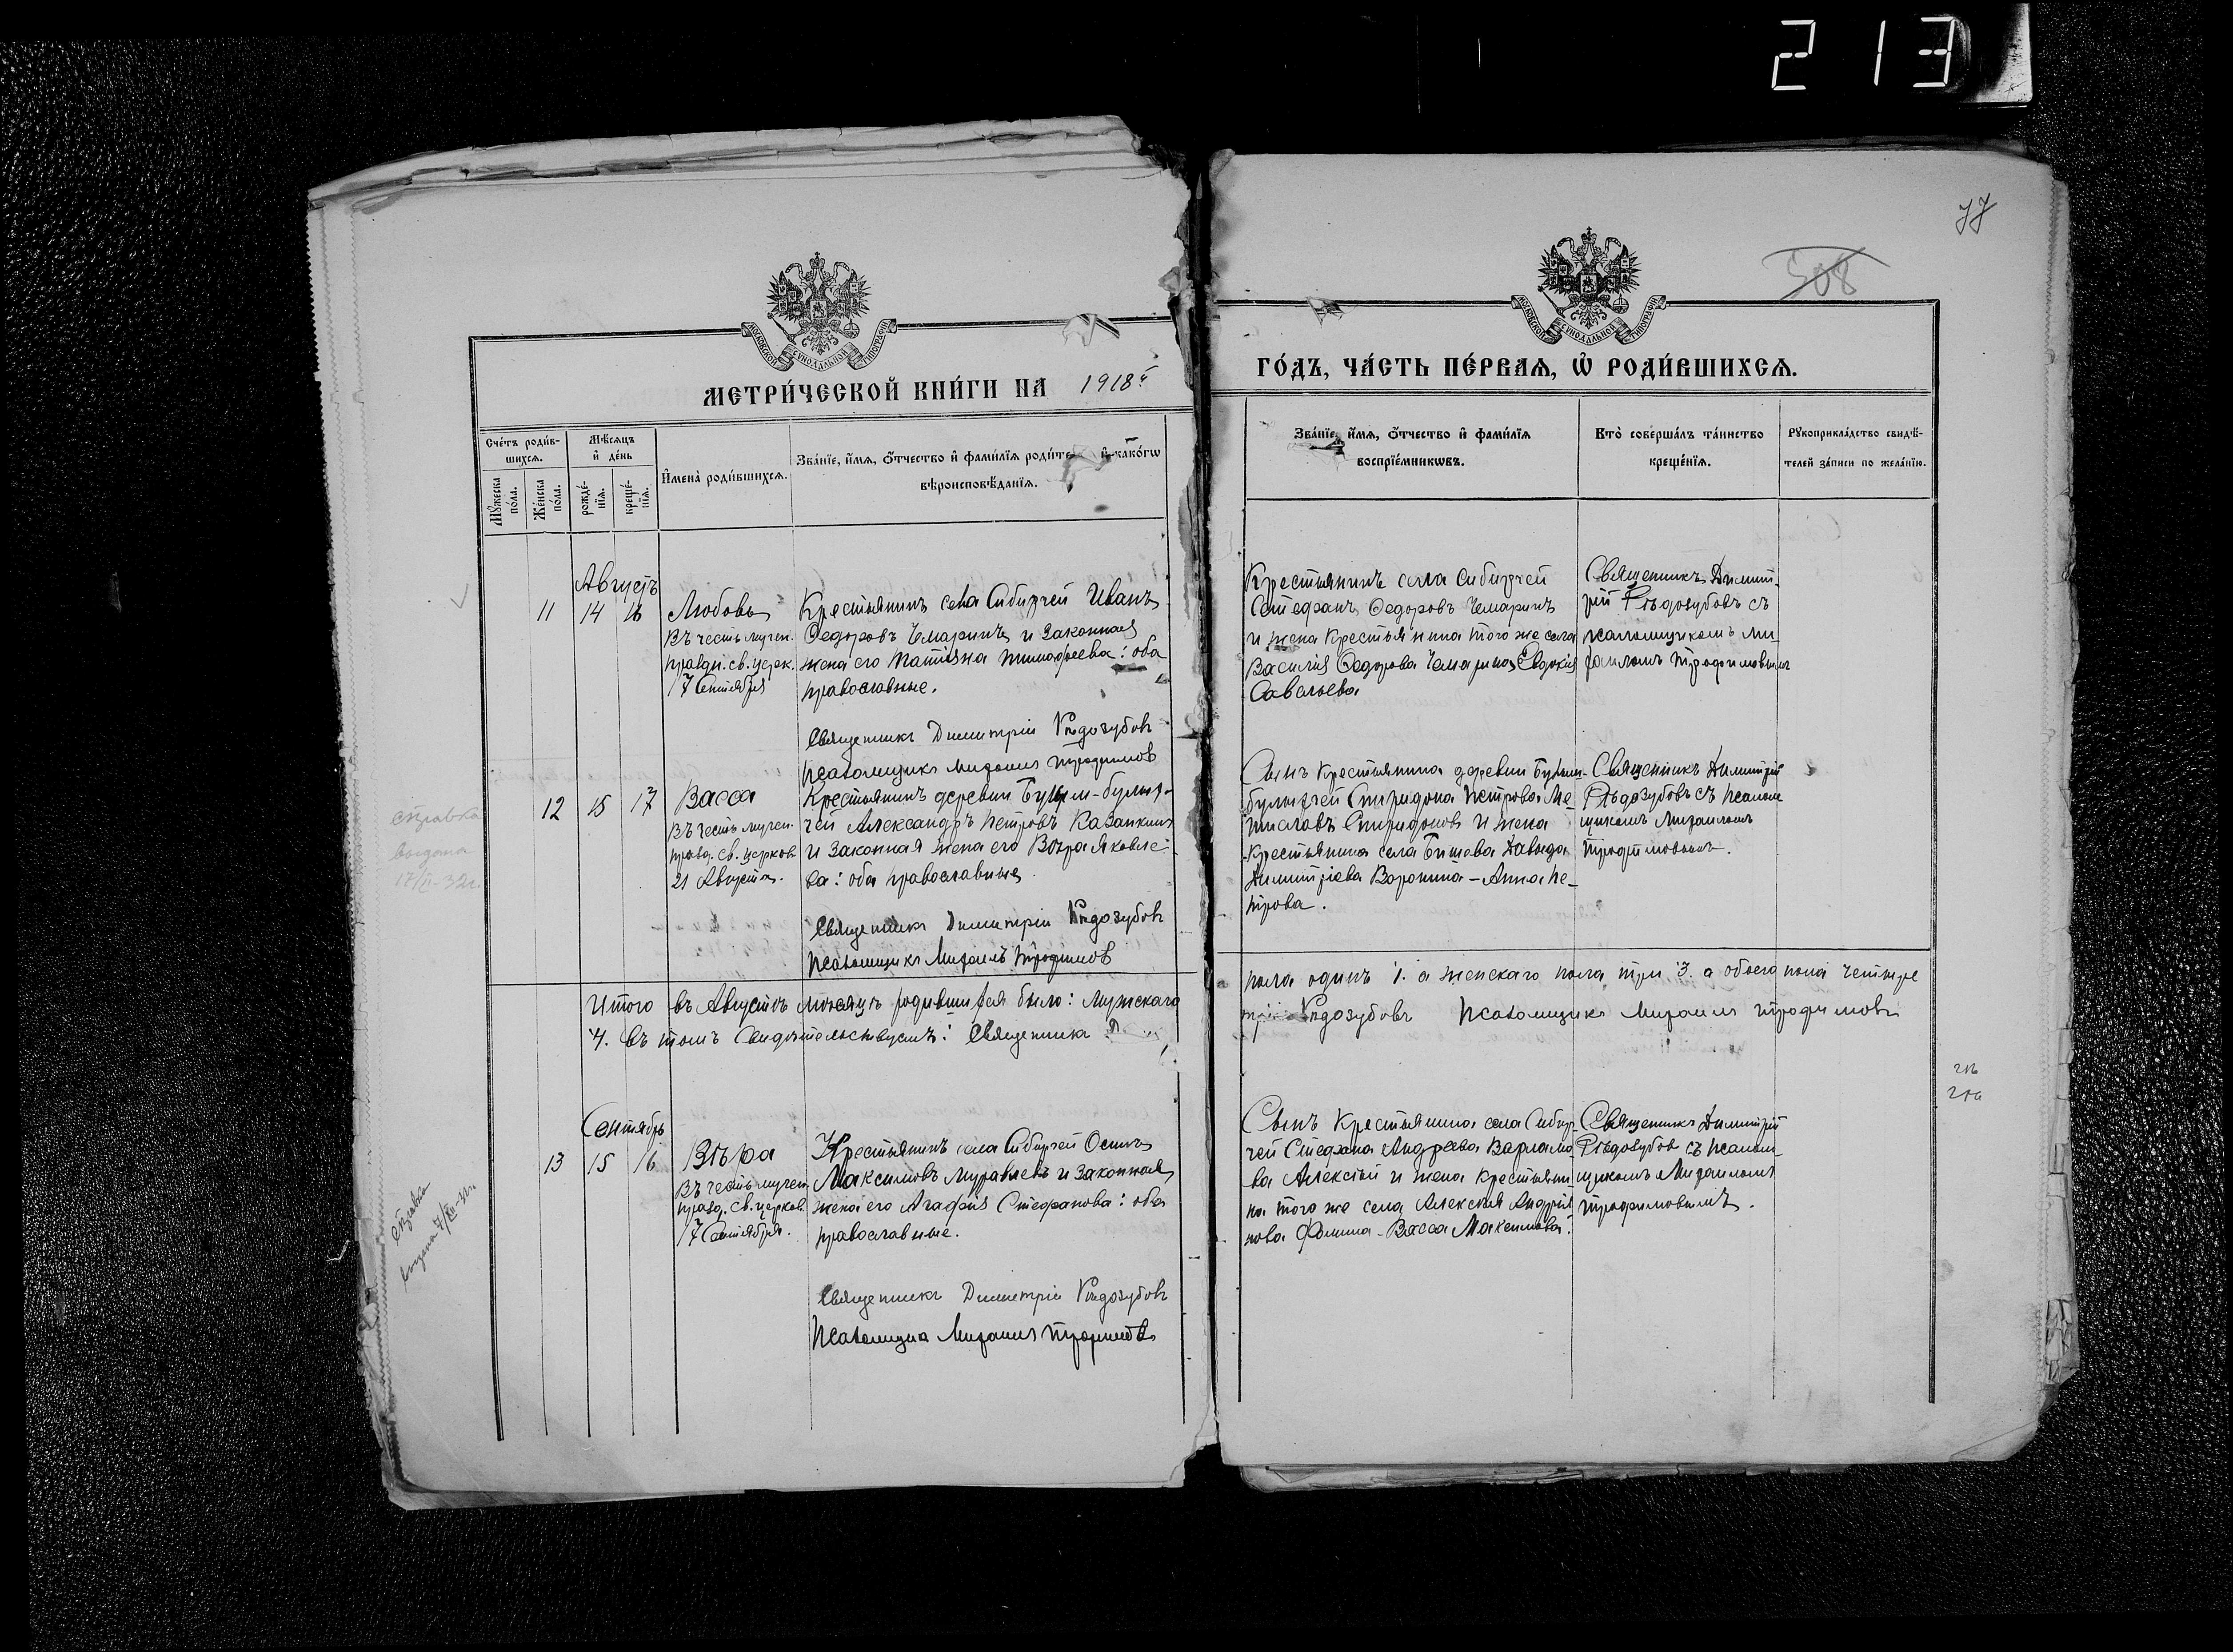 213
77
508
МЕТРИ́ЧЕСКОЙ КНИ́ГИ НА 1918й
ГО́ДЪ, ЧА́СТЬ ПЕ́РВАѦ, Ѡ҆ РОДИ́ВШИХСѦ.
МОСКОВСКОЙ СѴНОДАЛЬНОЙ ТИПОГРАФІИ
МОСКОВСКОЙ СѴНОДАЛЬНОЙ ТИПОГРАФІИ
Сче́тъ роди́в-
шихсѧ.
Мꙋ́жеска по́ла.
Же́нска по́ла.
Мѣ́сѧцъ и҆ де́нь
рожде́-
нїѧ.
креще́-
нїѧ.
И҆мена̀ роди́вшихсѧ.
Зва́нїе, и҆́мѧ, ѻ҆́тчество и҆ фами́лїѧ роди́те и҆ како́гѡ
вѣроисповѣ́данїѧ.
Зва́нїе, и҆́мѧ, ѻ҆́тчество и҆ фами́лїѧ
воспрїе́мникѡвъ.
Кто̀ соверша́лъ та́инство
креще́нїѧ.
Рꙋкоприкла́дство свидѣ́-
телей за́писи по жела́нїю.
Августъ
11 14 16 Любовь
Въ честь мучен.
праздн. св. церк.
17 Сентября
Крестьянинъ села Сибирчей Иванъ
Федоровъ Чемаринъ и законная
жена его Татiяна Тимофеева: оба
православные.
Священникъ Димитрій Рѣдозубовъ
Псаломщикъ Михаилъ Трофимовъ
Крестьянинъ села Сибирчей
Стефанъ Федоровъ Чемаринъ
и жена крестьянина того же села
Василія Федорова Чемарина Евдокія
Савельева
Священникъ Димит-
рій Рѣдозубовъ съ
псаломщикомъ Ми-
хаиломъ Трофимовымъ
справка
выдана
17/II-32г.
12 15 17 Васса
Въ честь мучен.
празд. св. церков.
21 Августа.
Крестьянинъ деревни Булым-булых-
чей Александръ Петровъ Казанкинъ
и законная жена его Вѣра Яковле-
ва: оба православные
Священникъ Димитрій Рѣдозубовъ
Псаломщикъ Михаилъ Трофимовъ
Сынъ крестьянина деревни Булым-
булыхчей Спиридона Петрова Ме-
Спиридоновъ и жена
крестьянина села Бишева Давыда
Димитріева Воронина - Анна Пе-
трова.
Священникъ Димитрій
Рѣдозубовъ съ псалом-
щикомъ Михаиломъ
Трофимовымъ.
Итого въ Августѣ мѣсяцѣ родившихся было: мужскаго
пола одинъ 1. а женскаго пола три 3. а обоего пола четыре
4. Въ томъ свидѣтельствуемъ: Священникъ Д
трій Рѣдозубовъ Псаломщикъ Михаилъ Трофимовъ
Сентябрь
13 15 16 Вѣра
Въ честь мучен.
празд. св. церков.
17 Сентября.
Крестьянинъ села Сибирчей Осипъ
Максимовъ Муравьевъ и законная
жена его Агафія Стефанова: оба
православные.
Священникъ Димитрій Рѣдозубовъ
Псаломщикъ Михаилъ Трофимовъ
Сынъ крестьянина села Сибир-
чей Стефана Андреева Варламо-
ва Алексѣй и жена крестьяни-
на того же села Алексѣя Андрія-
нова Фомина - Васса Максимова.
Священникъ Димитрій
Рѣдозубов съ псалом-
щикомъ Михаиломъ
Трофимовымъ.
справка